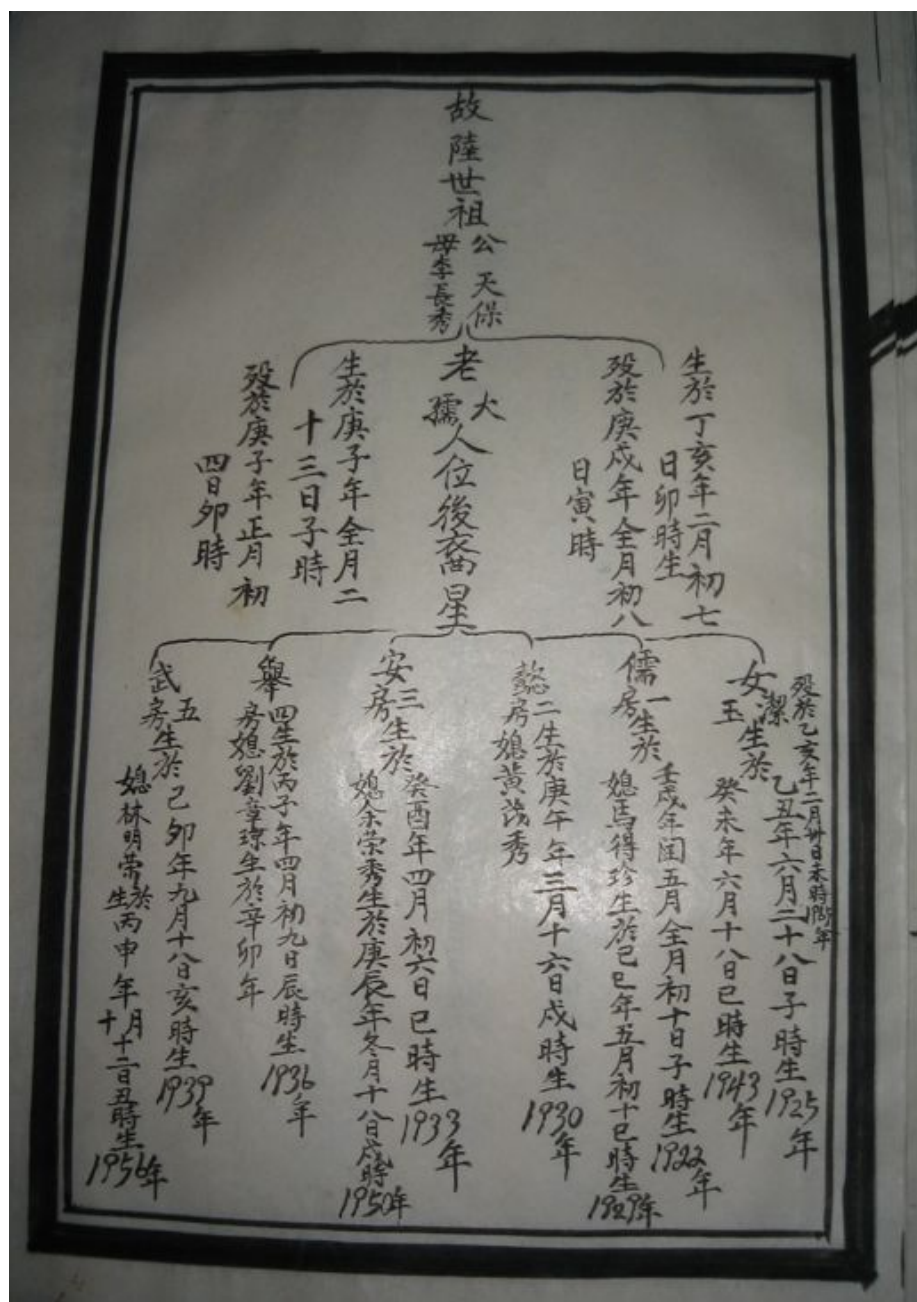 故陸世祖
公天保
母李長秀
老大人
孺人位後裔星
生於丁亥年二月初七
日卯時生
歿於庚戌年全月初八
日寅時
生於庚子年全月二
十三日子時
歿於庚子年正月初
四日卯時
歿於乙亥年二月廿日未時
女潔生於乙丑年六月二十八日子時生1925年
玉
癸未年六月十八日巳時生1943年
儒一房生於壬戌年閏五月全月初十日子時生1922年
媳馬得珍生於己巳年五月初十巳時生1929年
懿二房生於庚午年三月十六日戌時生1930年
媳黃 秀
安三房生於癸酉年四月初六日巳時生1933年
媳余荣秀生於庚辰年冬月十八日戌時1950年
舉四房生於丙子年四月初九日辰時生1936年
媳劉章瓊生於辛卯年
武五房生於己卯年九月十八日亥時生1939年
媳林明荣生於丙申年十月十二日丑時生1956年